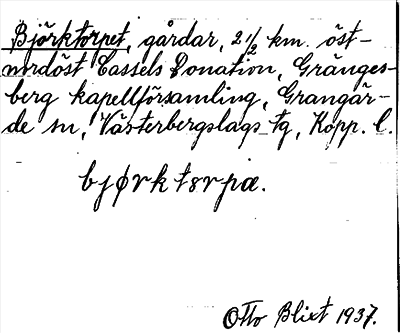 Björktorpet, gårdar, 2 1/2 km. öst-
nordöst Cassels Donation, Gränges-
berg kapellförsamling, Grangär-
de sn, Västerbergslags tg, Kopp. l.
bjørktɤrpa.
Otto Blixt 1937.